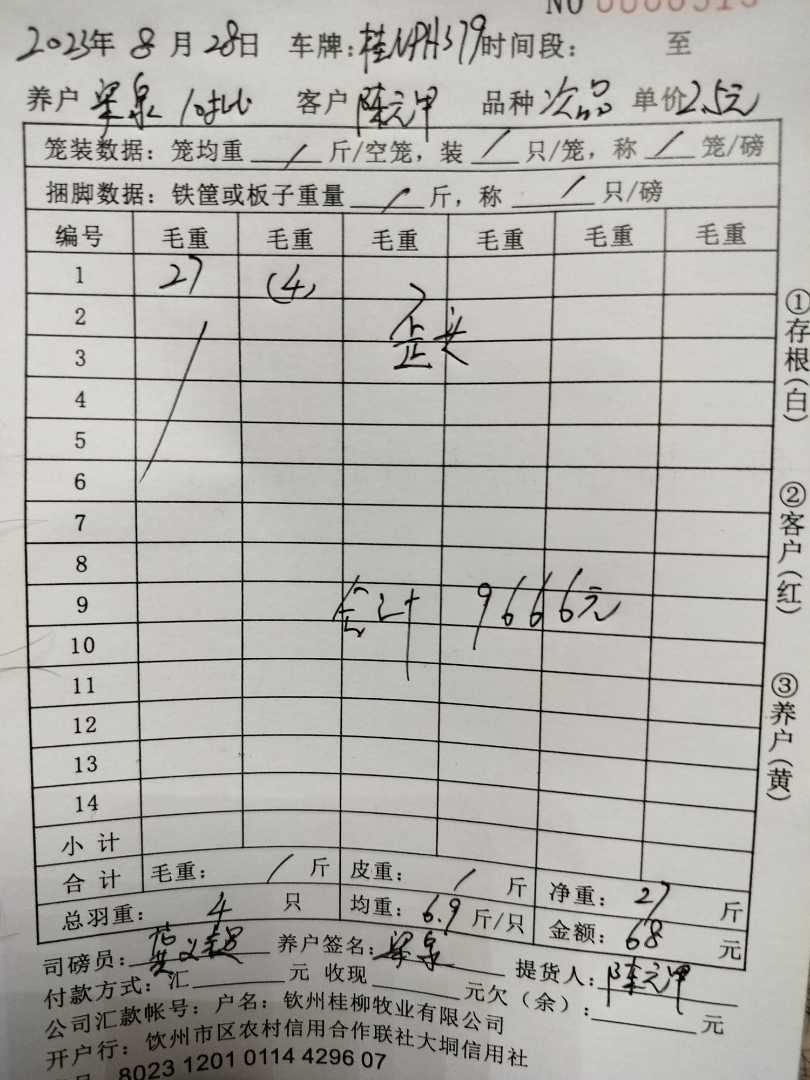 NO 0000313
2023年 8 月 28日 车牌:桂NPH379 时间段: 至
养户 梁泉 10批 客户 陈元甲 品种 次品 单价 2.5元
笼装数据: 笼均重 / 斤/空笼, 装 / 只/笼, 称 / 笼/磅
捆脚数据: 铁筐或板子重量 / 斤, 称 / 只/磅
编号 毛重 毛重 毛重 毛重 毛重 毛重
1 27 (4)
2
3 歪头
4
5
6
7
8
9 合计 9666元
10
11
12
13
14
小 计
合 计 毛重: / 斤 皮重: / 斤 净重: 27 斤
总羽重: 4 只 均重: 6.9 斤/只 金额: 68 元
司磅员: 养户签名: 梁泉 提货人: 陈元甲
付款方式: 汇 元 收现 元欠(余): 元
公司汇款帐号: 户名: 钦州桂柳牧业有限公司
开户行: 钦州市区农村信用合作联社大垌信用社
8023 1201 0114 4296 07
①存根(白)
②客户(红)
③养户(黄)